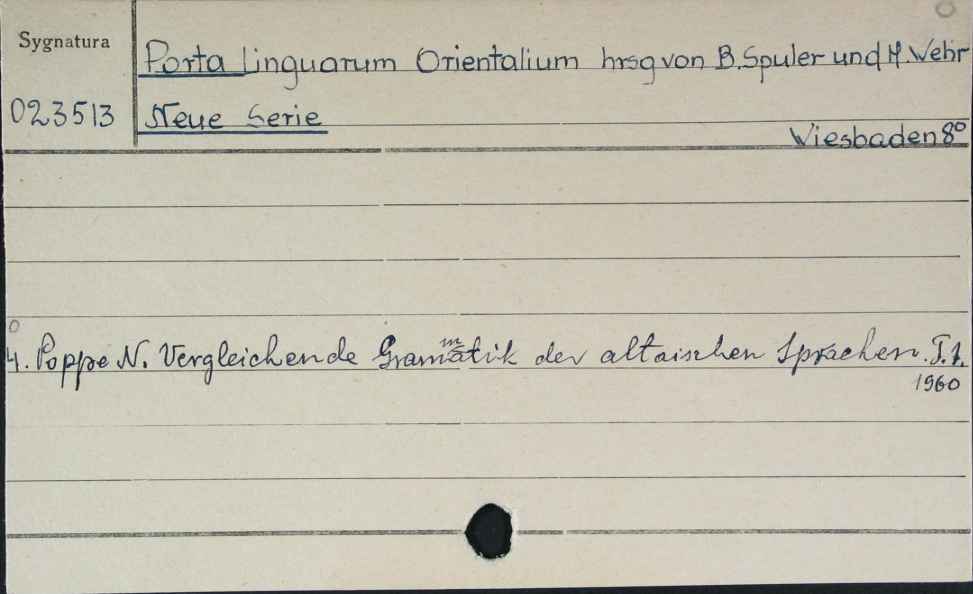 Sygnatura
Porta Linguarum Orientalium hrsg von B. Spuler und H. Wehr
023513
Neue Serie
Wiesbaden 8°
4. Poppe N. Vergleichende Grammatik der altaischen Sprachen. T.1.
1960